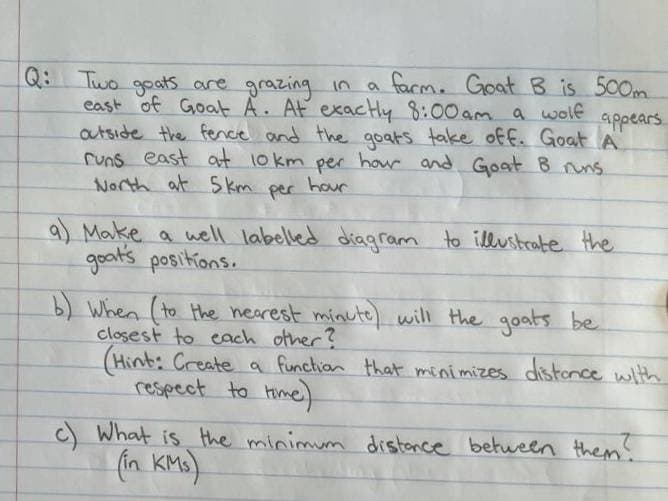 Q: Two goats are grazing in a farm. Goat B is 500m
east of Goat A. At exactly 8:00am a wolf appears
outside the fence and the goats take off. Goat A
runs east at 10km per hour and Goat B runs
North at 5km per hour
a) Make a well labelled diagram to illustrate the
goat's positions.
b) When (to the nearest minute) will the goats be
closest to each other?
(Hint: Create a function that minimizes distance with
respect to time)
c) What is the minimum distance between them?
(in KMs)